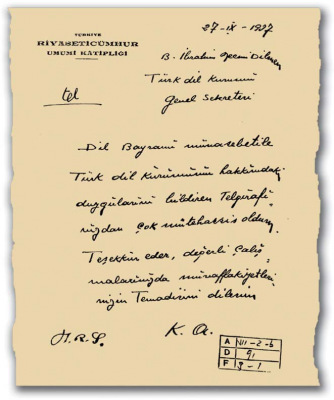 TÜRKİYE
RİYASETİCÜMHUR
UMUMİ KATİPLİĞİ
27-IX-1937
B. İbrahim Necmi Dilmen
Türk dil Kurumu
Genel Sekreteri
tel
Dil Bayramı münasebetile
Türk dil Kurumunun hakkımdaki
duygularını bildiren Telgrafı
nızdan çok mütehassis oldum.
Teşekkür eder, değerli çalış
malarınızda muvaffakiyetleri
nizin Temadisini dilerim
K. A.
A VII-2-b
D 91
F 9-1